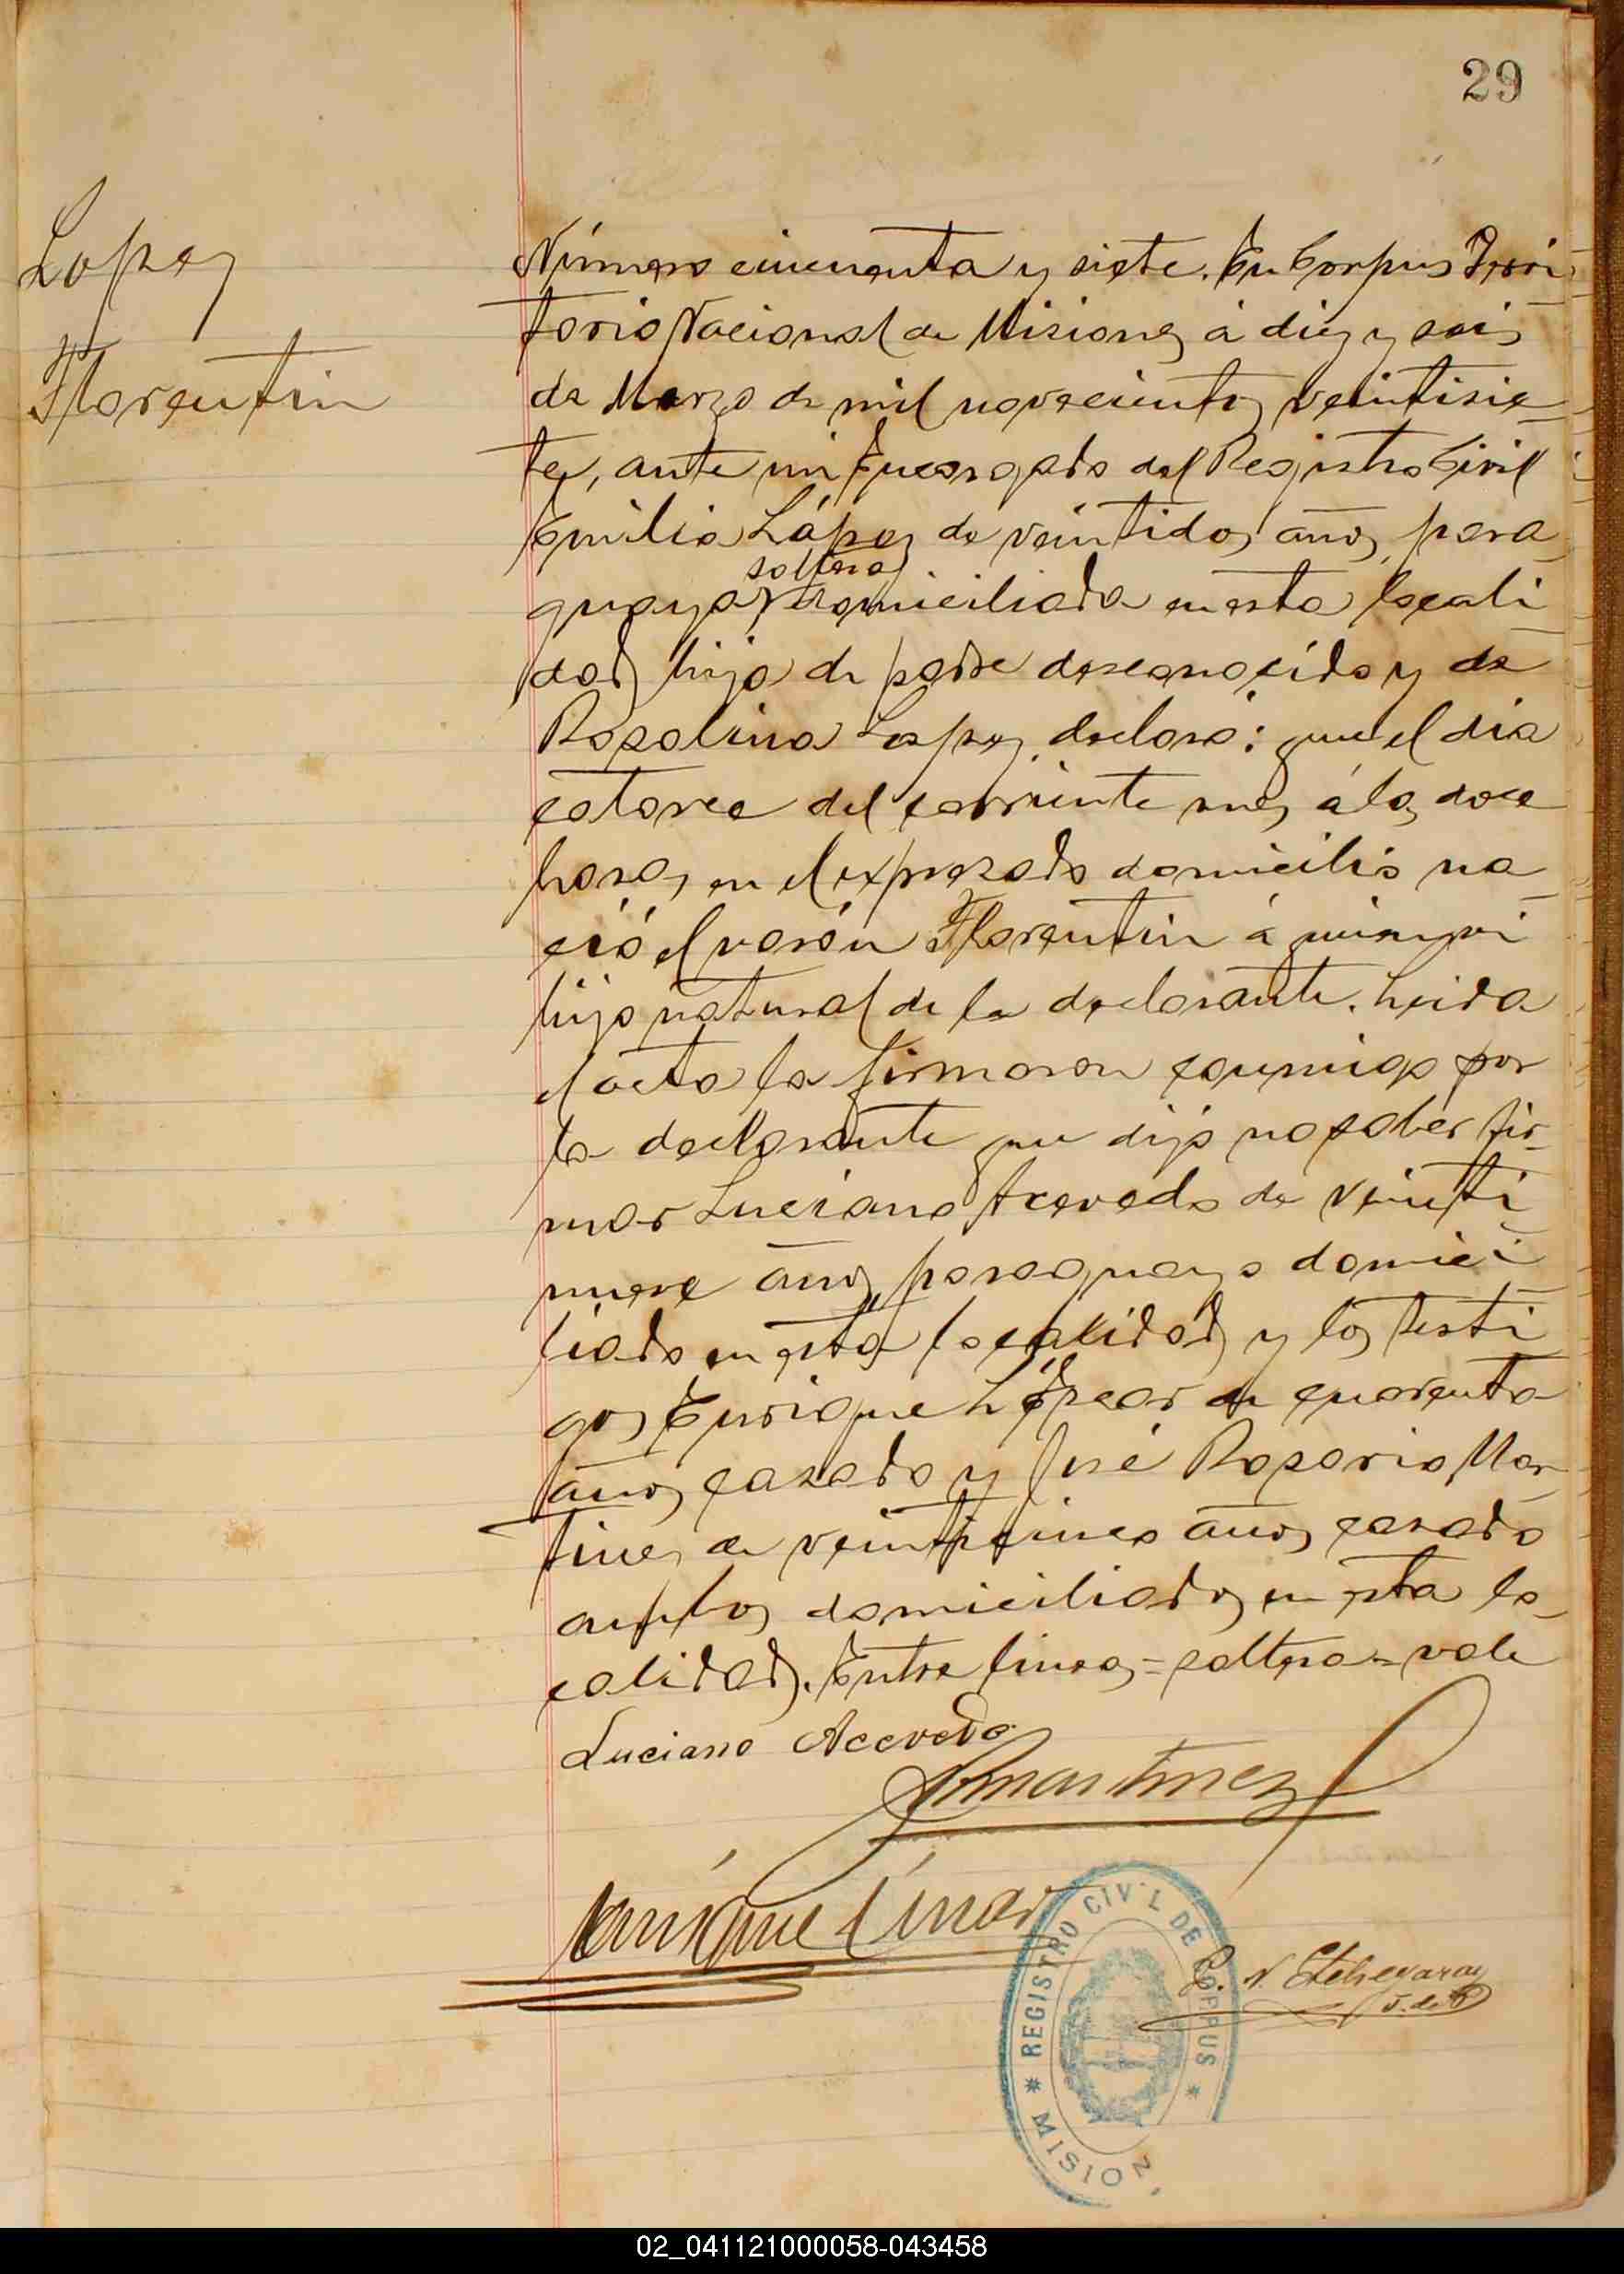 29
Lopez
Florentin
Número cincuenta y siete. En Corpus Terri
torio Nacional de Misiones á diez y seis
de Marzo de mil novecientos veintisie
te, ante mi Encargado del Registro Civil
Emilia López de veintidos años, para
soltera
guaya, domiciliada en esta locali
dad hija de padre desconocido y de
Rosalina Lopez, declaró: que el dia
catorce del corriente mes á las doce
horas, en el expresado domicilio na
ció el varón Florentin á quien vi
hijo natural de la declarante. Leida
el acta la firmaron conmigo por
la declarante que dijo no saber fir
mar Luciano Acevedo de veinti
nueve años, paraguayo domici
liado en esta localidad y los testi
gos Enrique de cuarenta
años, casado y José Rosario Mar
tinez de veinticinco años, casado
ambos domiciliados en esta lo
calidad. Entre lineas = soltera = vale
Luciano Acevedo
Martinez
Enrique
REGISTRO CIVIL DE CORPUS
* MISION *
N. Etchegaray
J. de P.
02_041121000058-043458